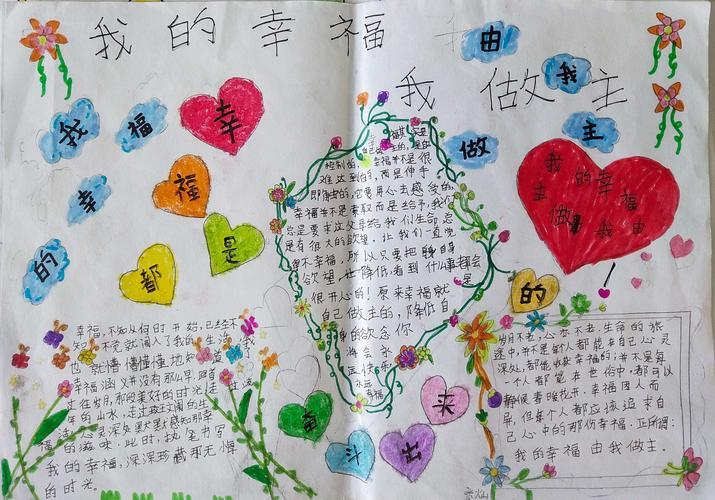 我的幸福
我做主
由
我
做
主
我
福
幸
的
幸
福
是
都
的
奋
斗
出
来
我的幸福
主
做
我由
控制的,幸福并不是很
难达到的,而是伸手
即得的,它需用心去感受的,
幸福并不是索取而是给予,我们
总是要求这父母给我们生命总
是有很大的欲望,让我们一直觉
得不幸福,所以只要把自身
欲望也降低看到什么事都会
很开心的!原来幸福就是
自己做主的,降低自
身的欲念你
将会永
远快乐
永远
幸福
幸福,不知从何时开始,已经不
知不觉就闯入了我的生活,我
也就懵懵懂懂地知道
幸福涵义并没有那么早,踏着
过往岁月,那段美好的时光走过,流
年的山水,走过斑斓的生
活,心灵深处默默感知那幸福
的滋味,此时,执笔书写
我的幸福,深深珍藏那无悔
的时光。
岁月不老,心亦不老,生命的旅
途中,并不是每个人都能在自己心灵
深处,都能收获幸福的,并不是每
一个人都能在世俗中,都可以
静候春暖花开。幸福因人而
异,但每个人都应该追求自
己心中的那份幸福。正所谓:
我的幸福由我做主.